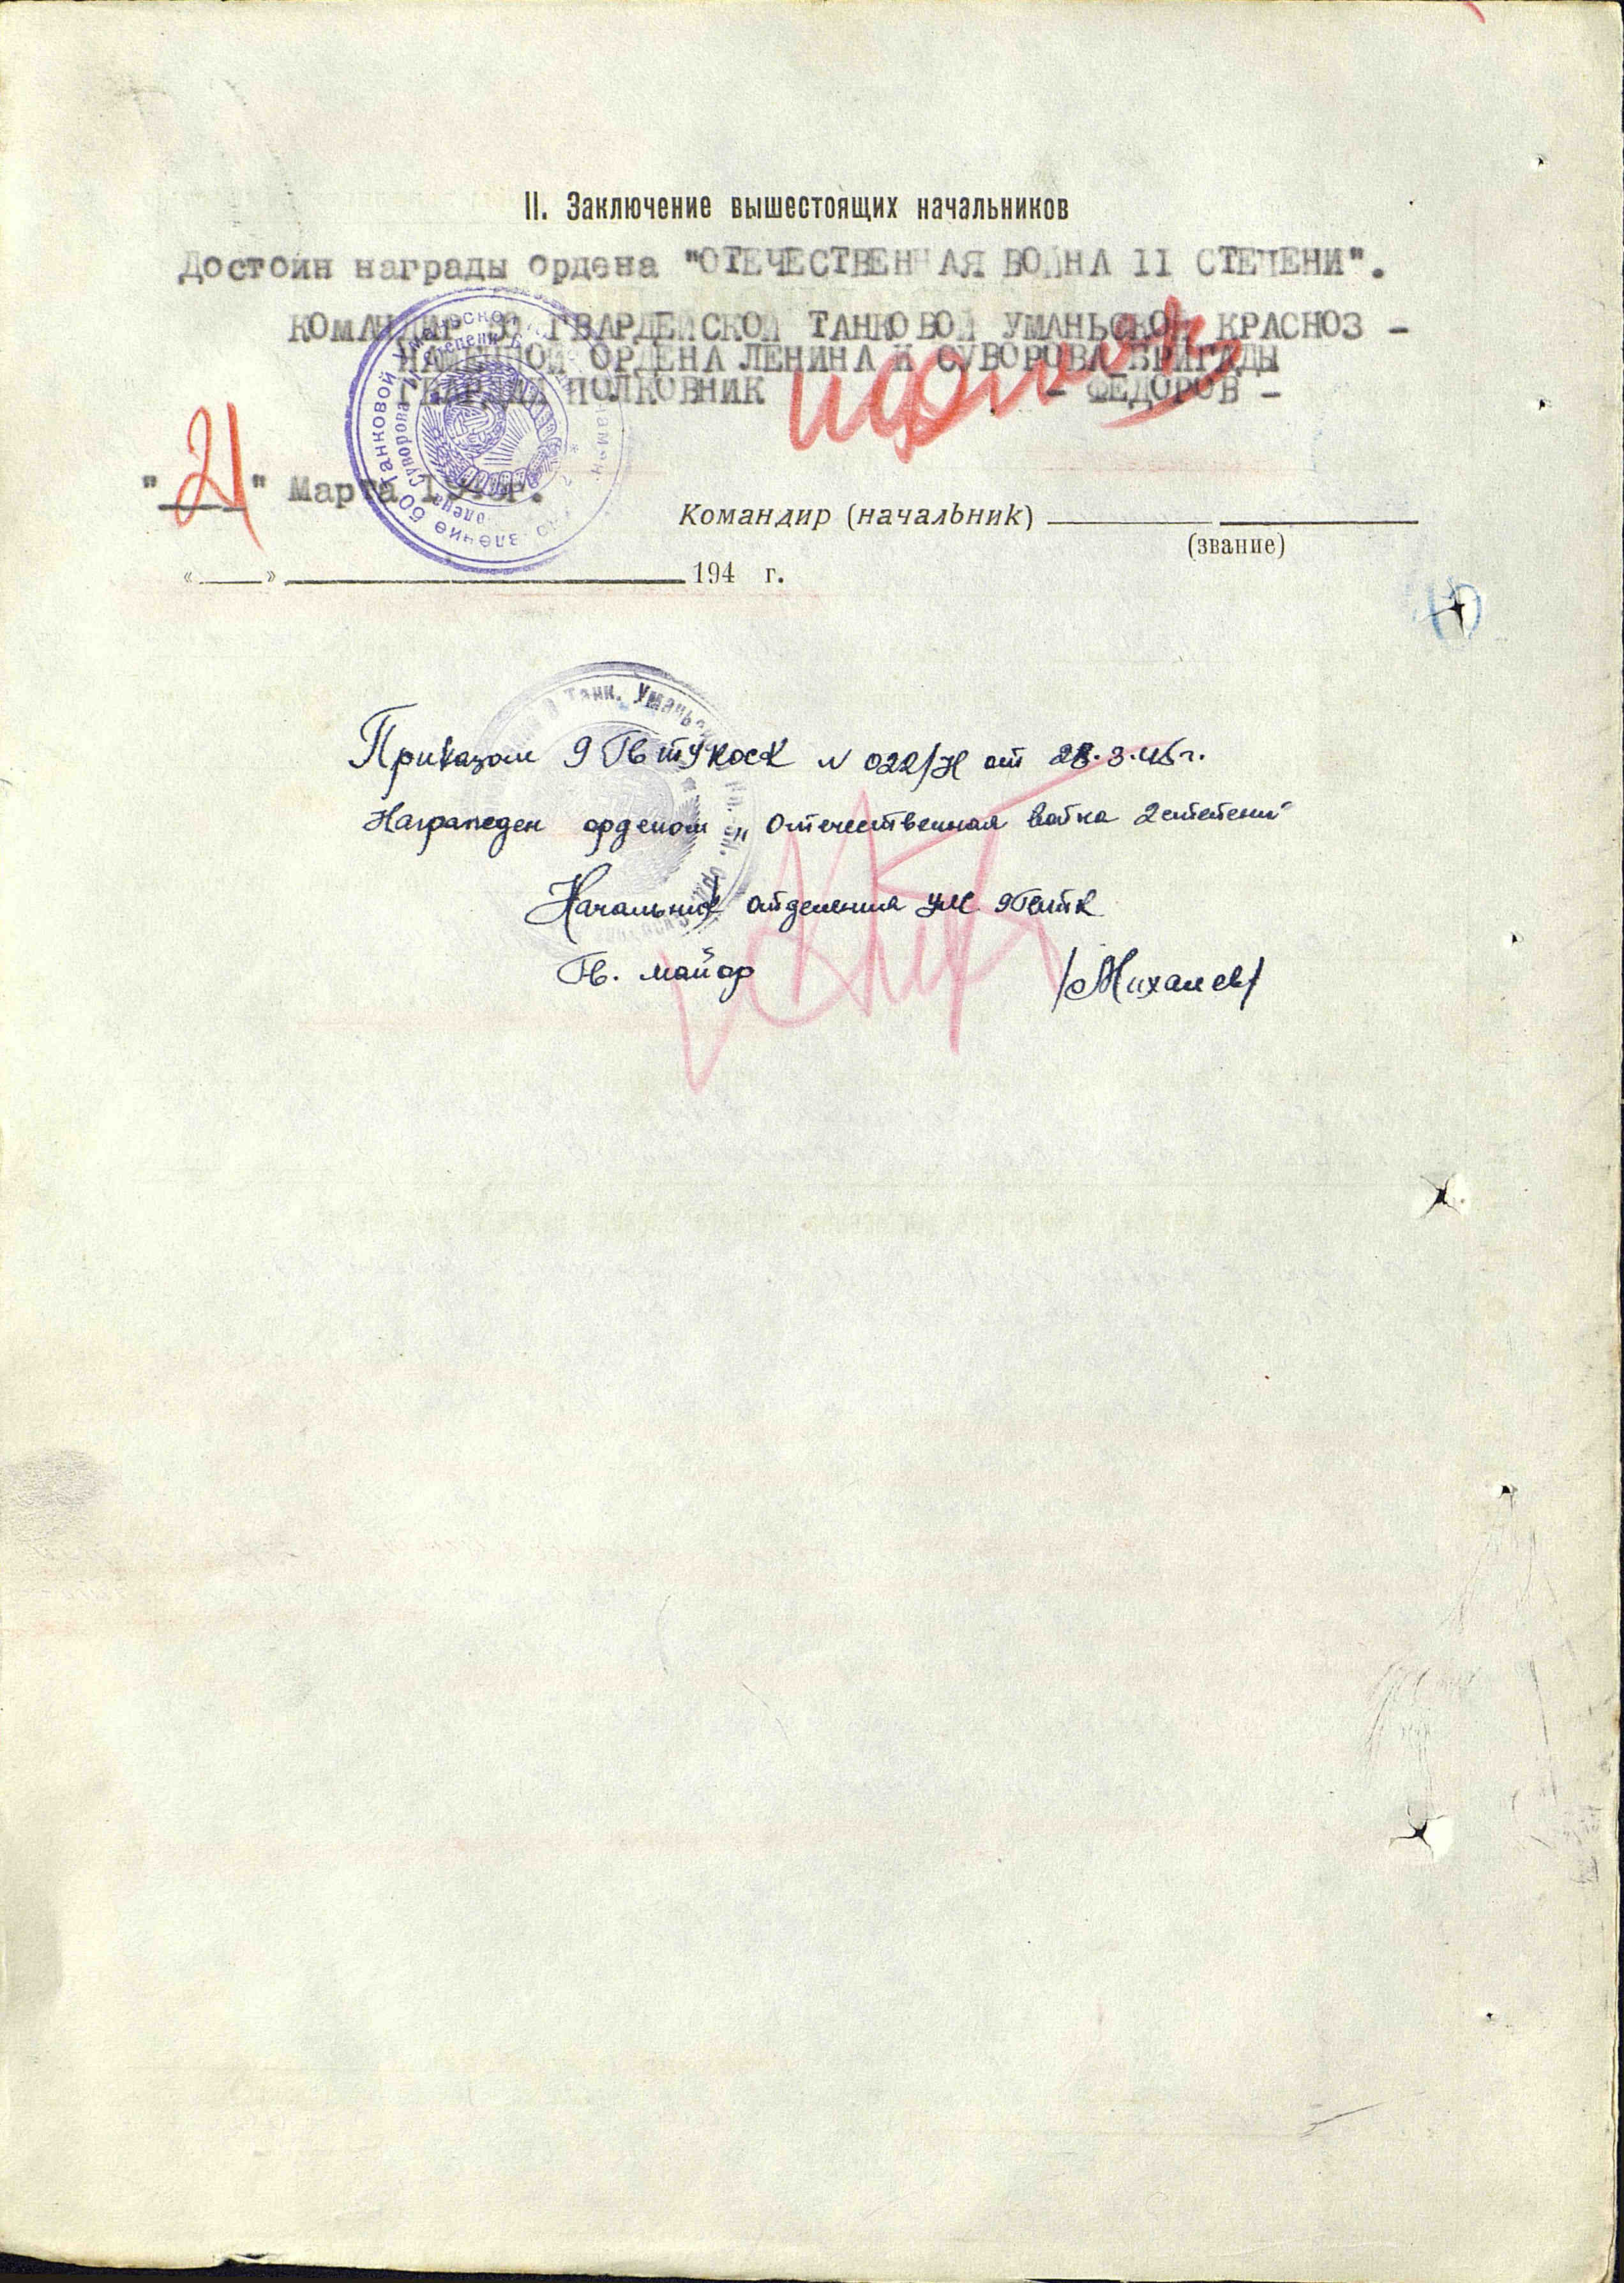 II. Заключение вышестоящих начальников
Достоин награды ордена "ОТЕЧЕСТВЕННАЯ ВОЙНА II СТЕПЕНИ".
КОМАНДИР 50 ГВАРДЕЙСКОЙ ТАНКОВОЙ УМАНЬСКОЙ КРАСНОЗ -
НАМЕННОЙ ОРДЕНА ЛЕНИНА И СУВОРОВА БРИГАДЫ
ГВАРДИИ ПОЛКОВНИК - ФЕДОРОВ -
"21" Марта 1945г.
Командир (начальник)
(звание)
« » 194 г.
Приказом 9 Гв ТУКОСК N 022/Н от 28.3.45г.
Награжден орденом „Отечественная война 2 степени"
Начальник отделения УК 9ГвТК
Гв. майор /Михалев/